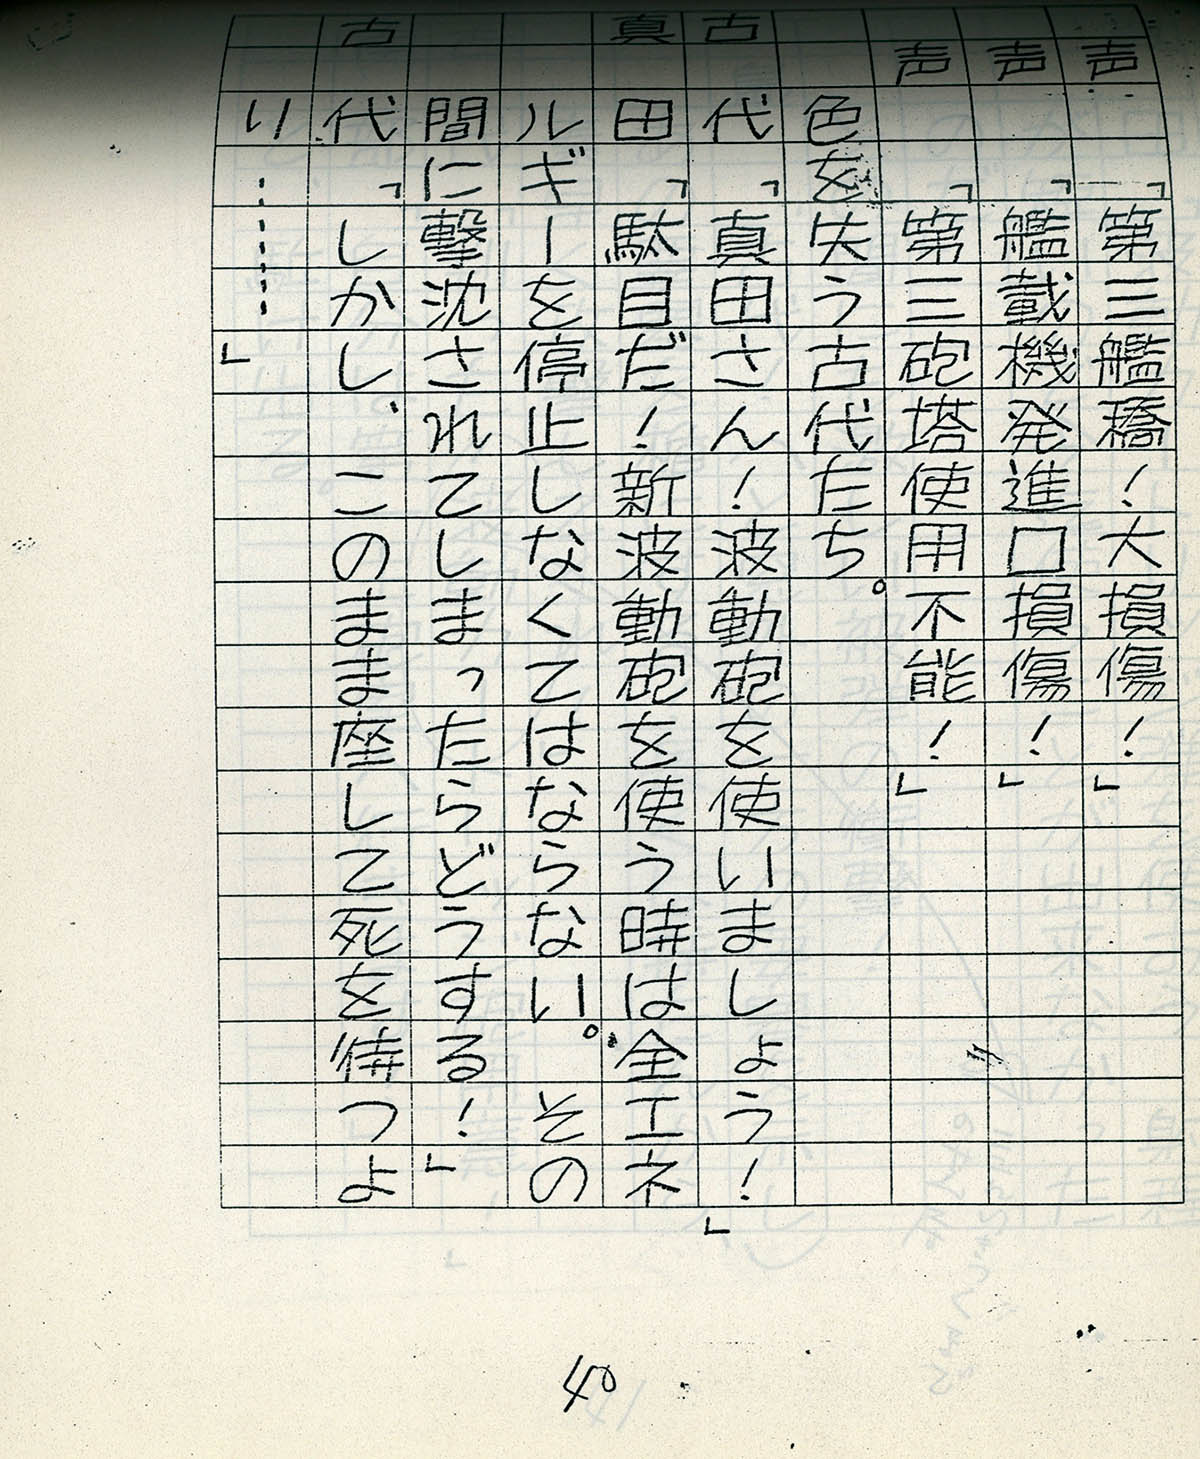 声「第三艦橋!大損傷!」
声「艦載機発進口損傷!」
声「第三砲塔使用不能!」
色を失う古代たち。
古代「真田さん!波動砲を使いましょう!」
真田「駄目だ!新波動砲を使う時は、全エネ
ルギーを停止しなくてはならない。その
間に撃沈されてしまったらどうする!」
古代「しかし、このまま座して死を待つよ
り……」
40